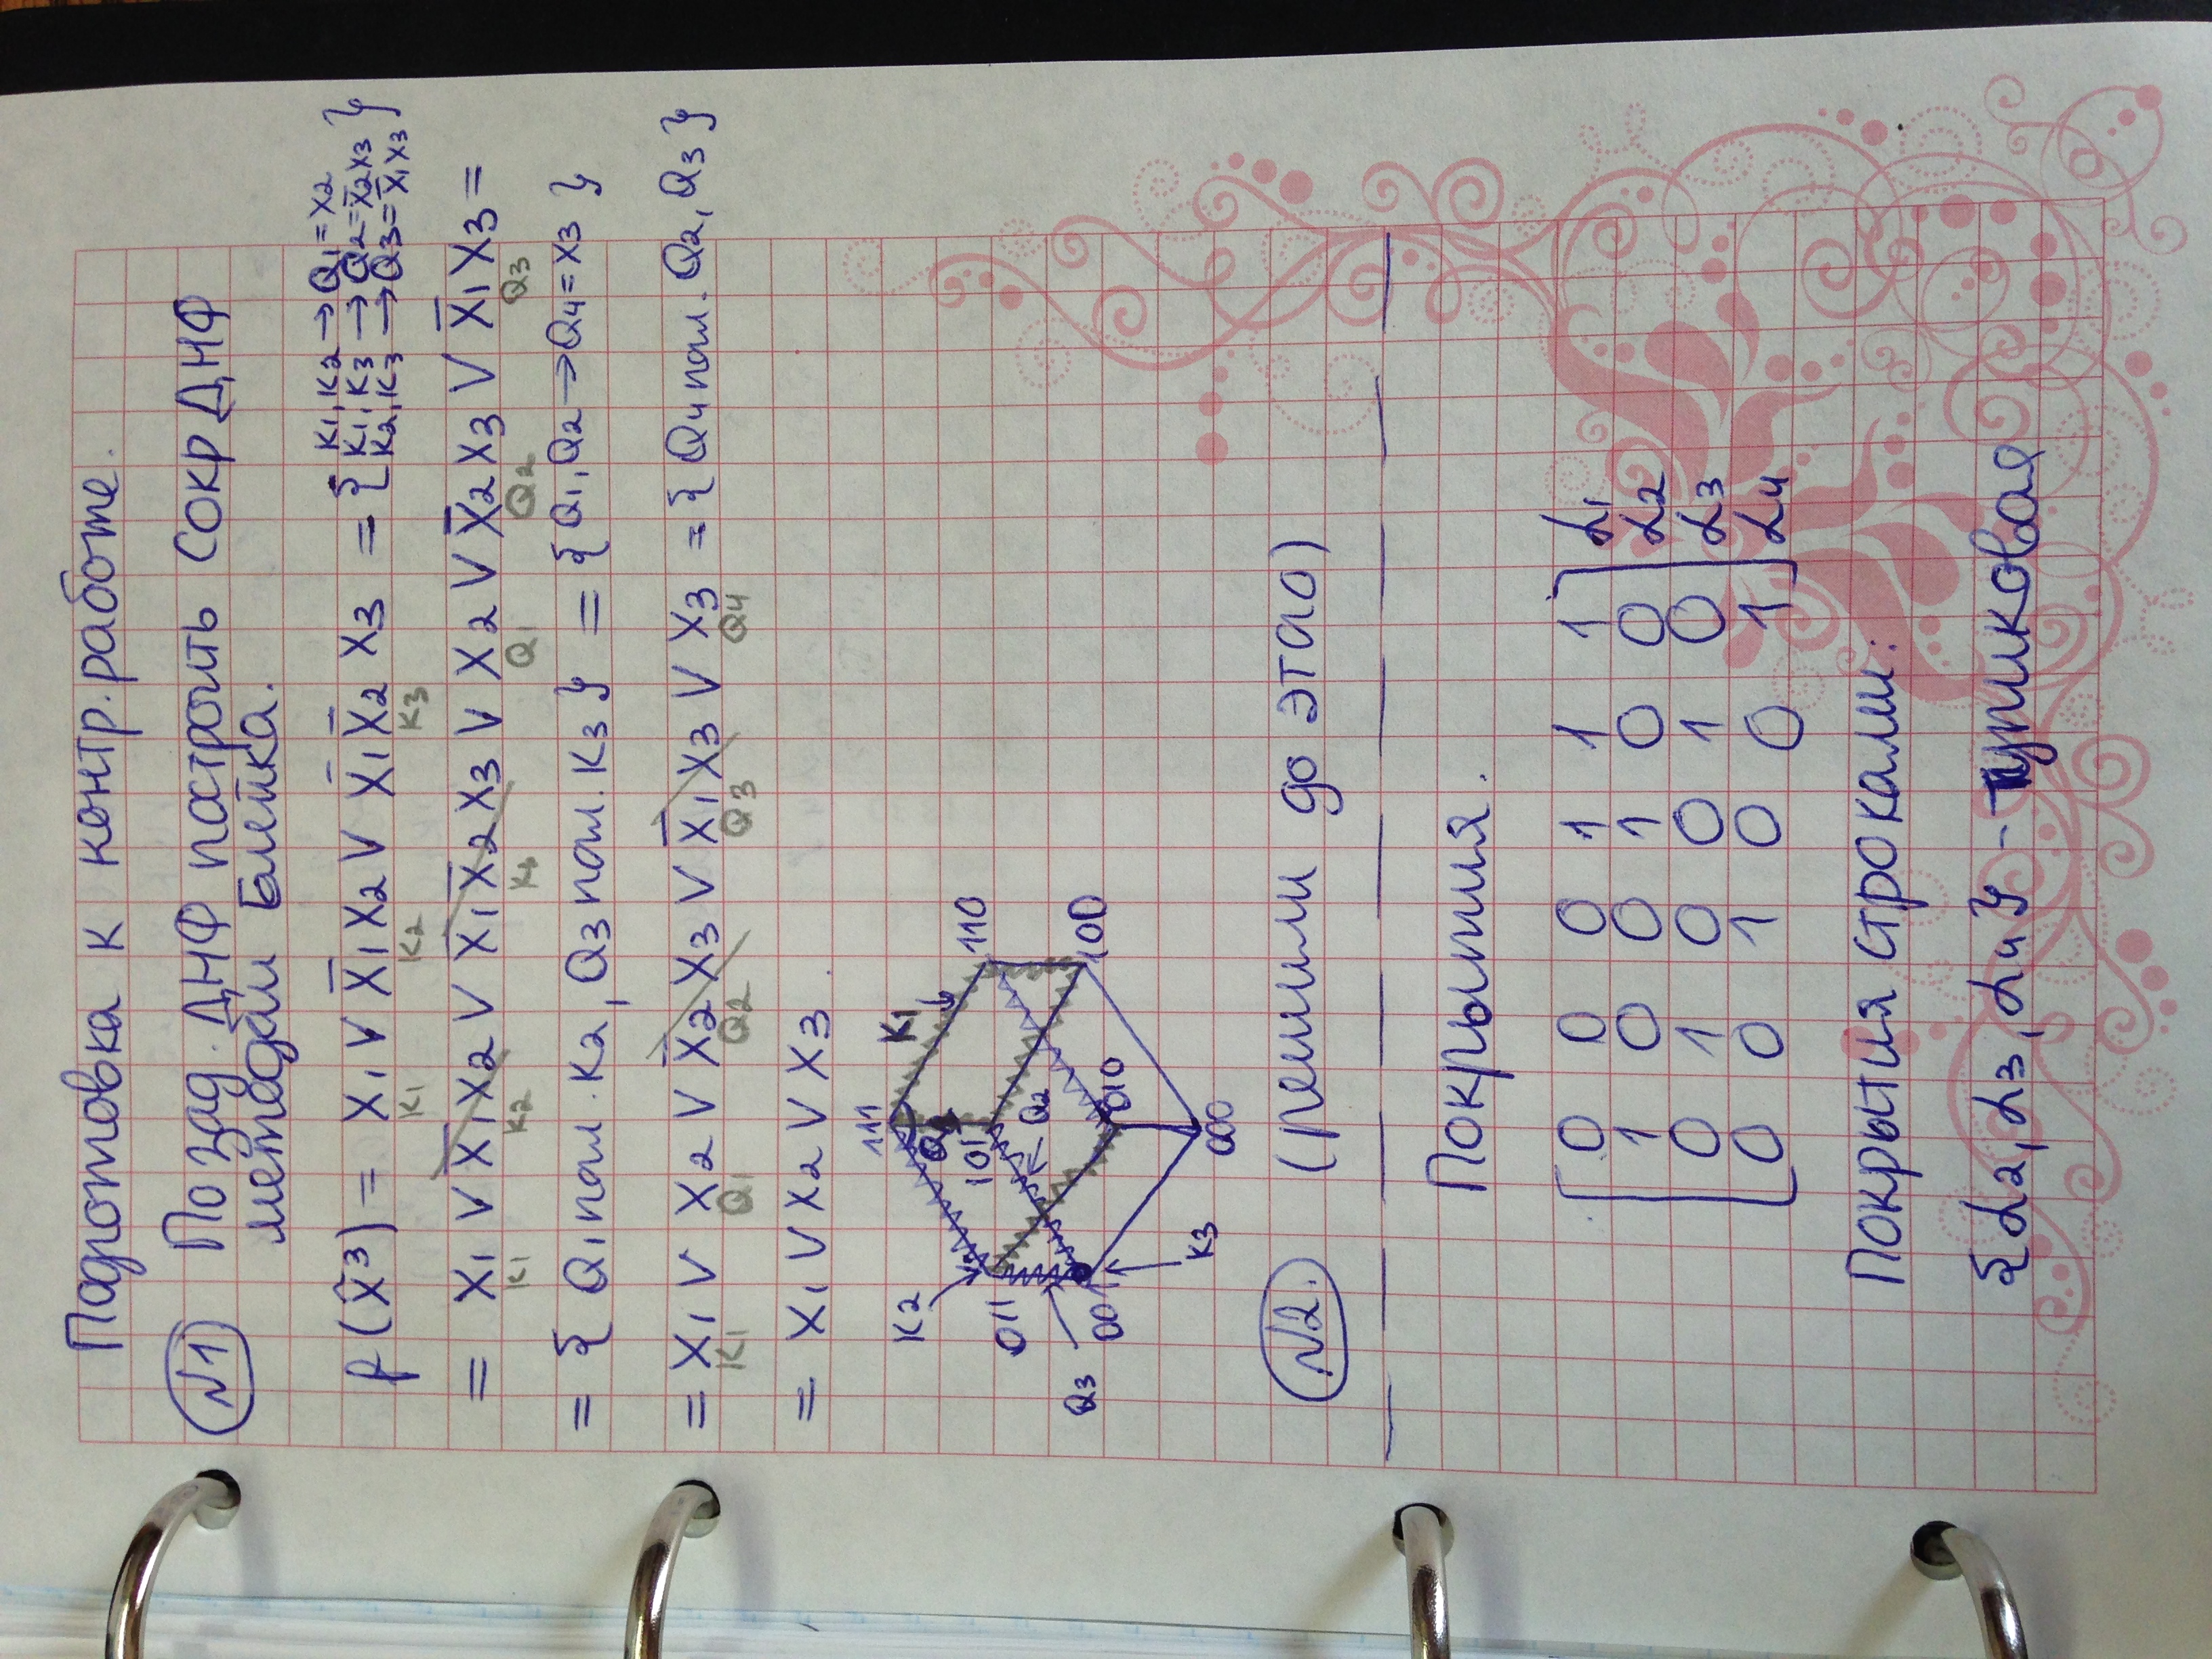 Подготовка к контр. работе.
№1 По зад. ДНФ построить Сокр ДНФ
методом Блейка.
f(x̃³) = x₁ ∨ x̄₁x₂ ∨ x̄₁x̄₂x₃ = { K₁,K₂→Q₁=x₂
K₁,K₃→Q₂=x̄₂x₃
K₂,K₃→Q₃=x̄₁x₃ }
K₁ K₂ K₃
= x₁ ∨ x̄₁x₂ ∨ x̄₁x̄₂x₃ ∨ x₂ ∨ x̄₂x₃ ∨ x̄₁x₃ =
K₁ K₂ K₄ Q₁ Q₂ Q₃
= { Q₁ погл. K₂, Q₃ погл. K₃ } = { Q₁,Q₂→Q₄=x₃ }
= x₁ ∨ x₂ ∨ x̄₂x₃ ∨ x̄₁x₃ ∨ x₃ = { Q₄ погл. Q₂, Q₃ }
K₁ Q₁ Q₂ Q₃ Q₄
= x₁ ∨ x₂ ∨ x₃.
111 K₁ 110
K₂ 101 Q₂
011 010 100
Q₃ 001 K₃ 000
№2. (решили до этого)
Покрытия.
[ 0 0 0 1 1 1 ] α₁
1 0 0 1 0 0 α₂
0 1 0 0 1 0 α₃
0 0 1 0 0 1 α₄
Покрытия строками:
{α₂, α₃, α₄} - тупиковая